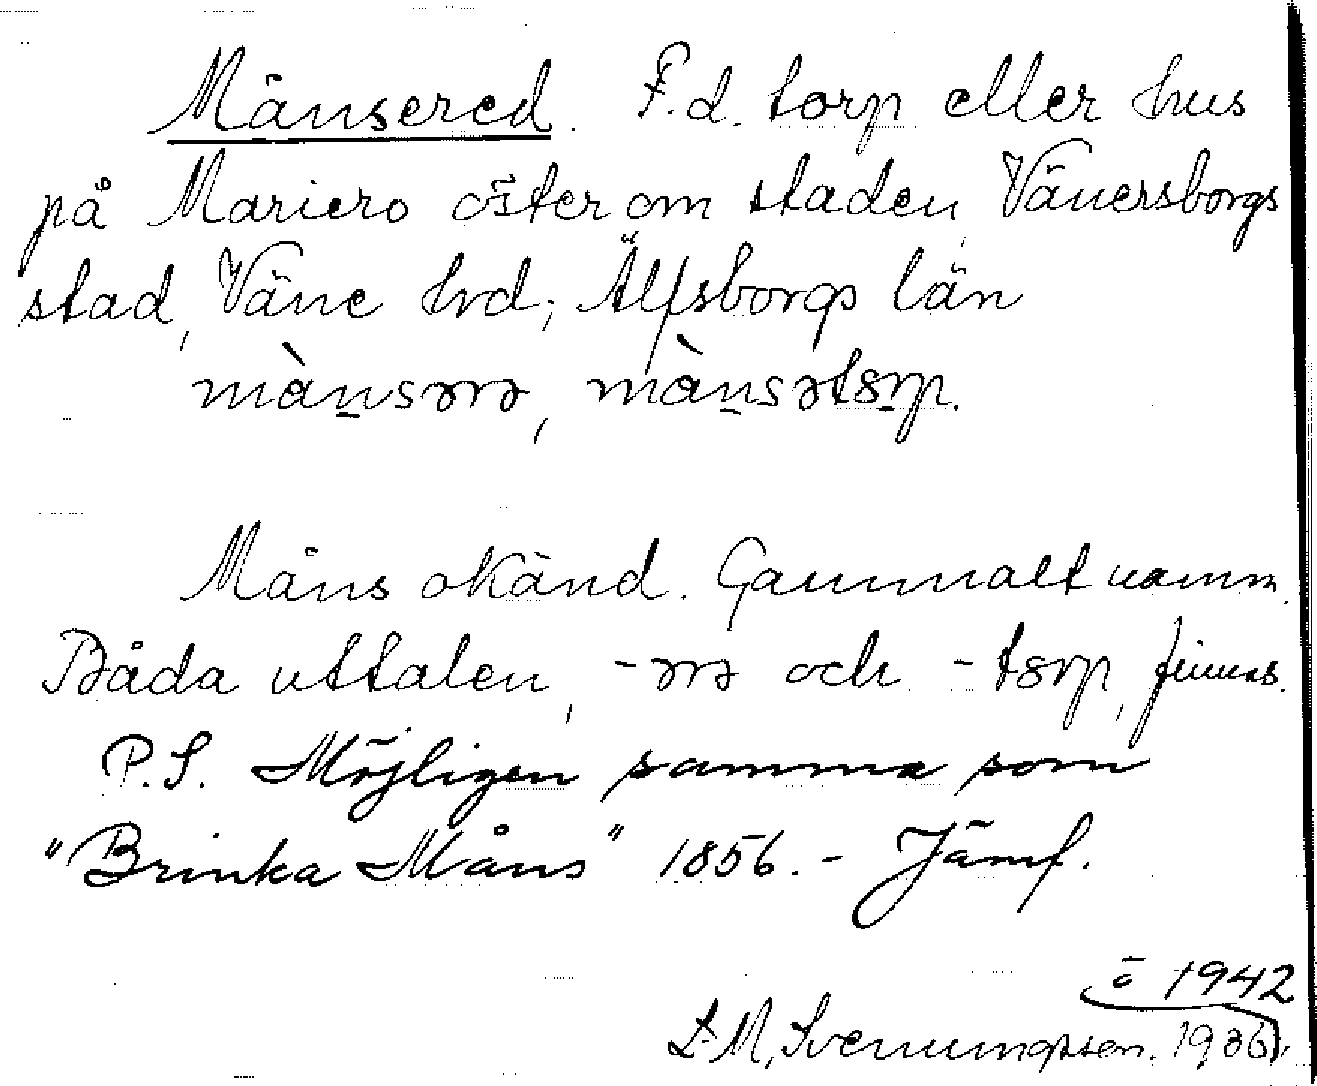 Månsered. F.d. torp eller hus
på Mariero öster om staden, Vänersborgs
stad, Väne hrd; Älfsborgs län
mànsərə, mànsətɔrp.
Måns okänd. Gammalt namn.
Båda uttalen, -ərə och -tɔrp, finnas.
P.S. Möjligen samma som
"Brinka Måns" 1856. - Jämf.
ö 1942
D.M. Svenungsson. 1936.